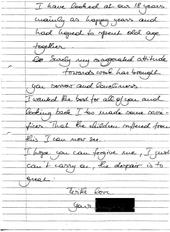 I have looked at our 18 years
mainly as happy years and
had hoped to spend old age
together.
So surely my exagerated attitude
towards work has brought
you sorrow and loneliness.
I wanted the best for all of you and
looking back I too made some sacri-
fices. That the children suffered from
this I can now see.
I hope you can forgive me, I just
can't carry on, the despair is to
great.
With love
Your